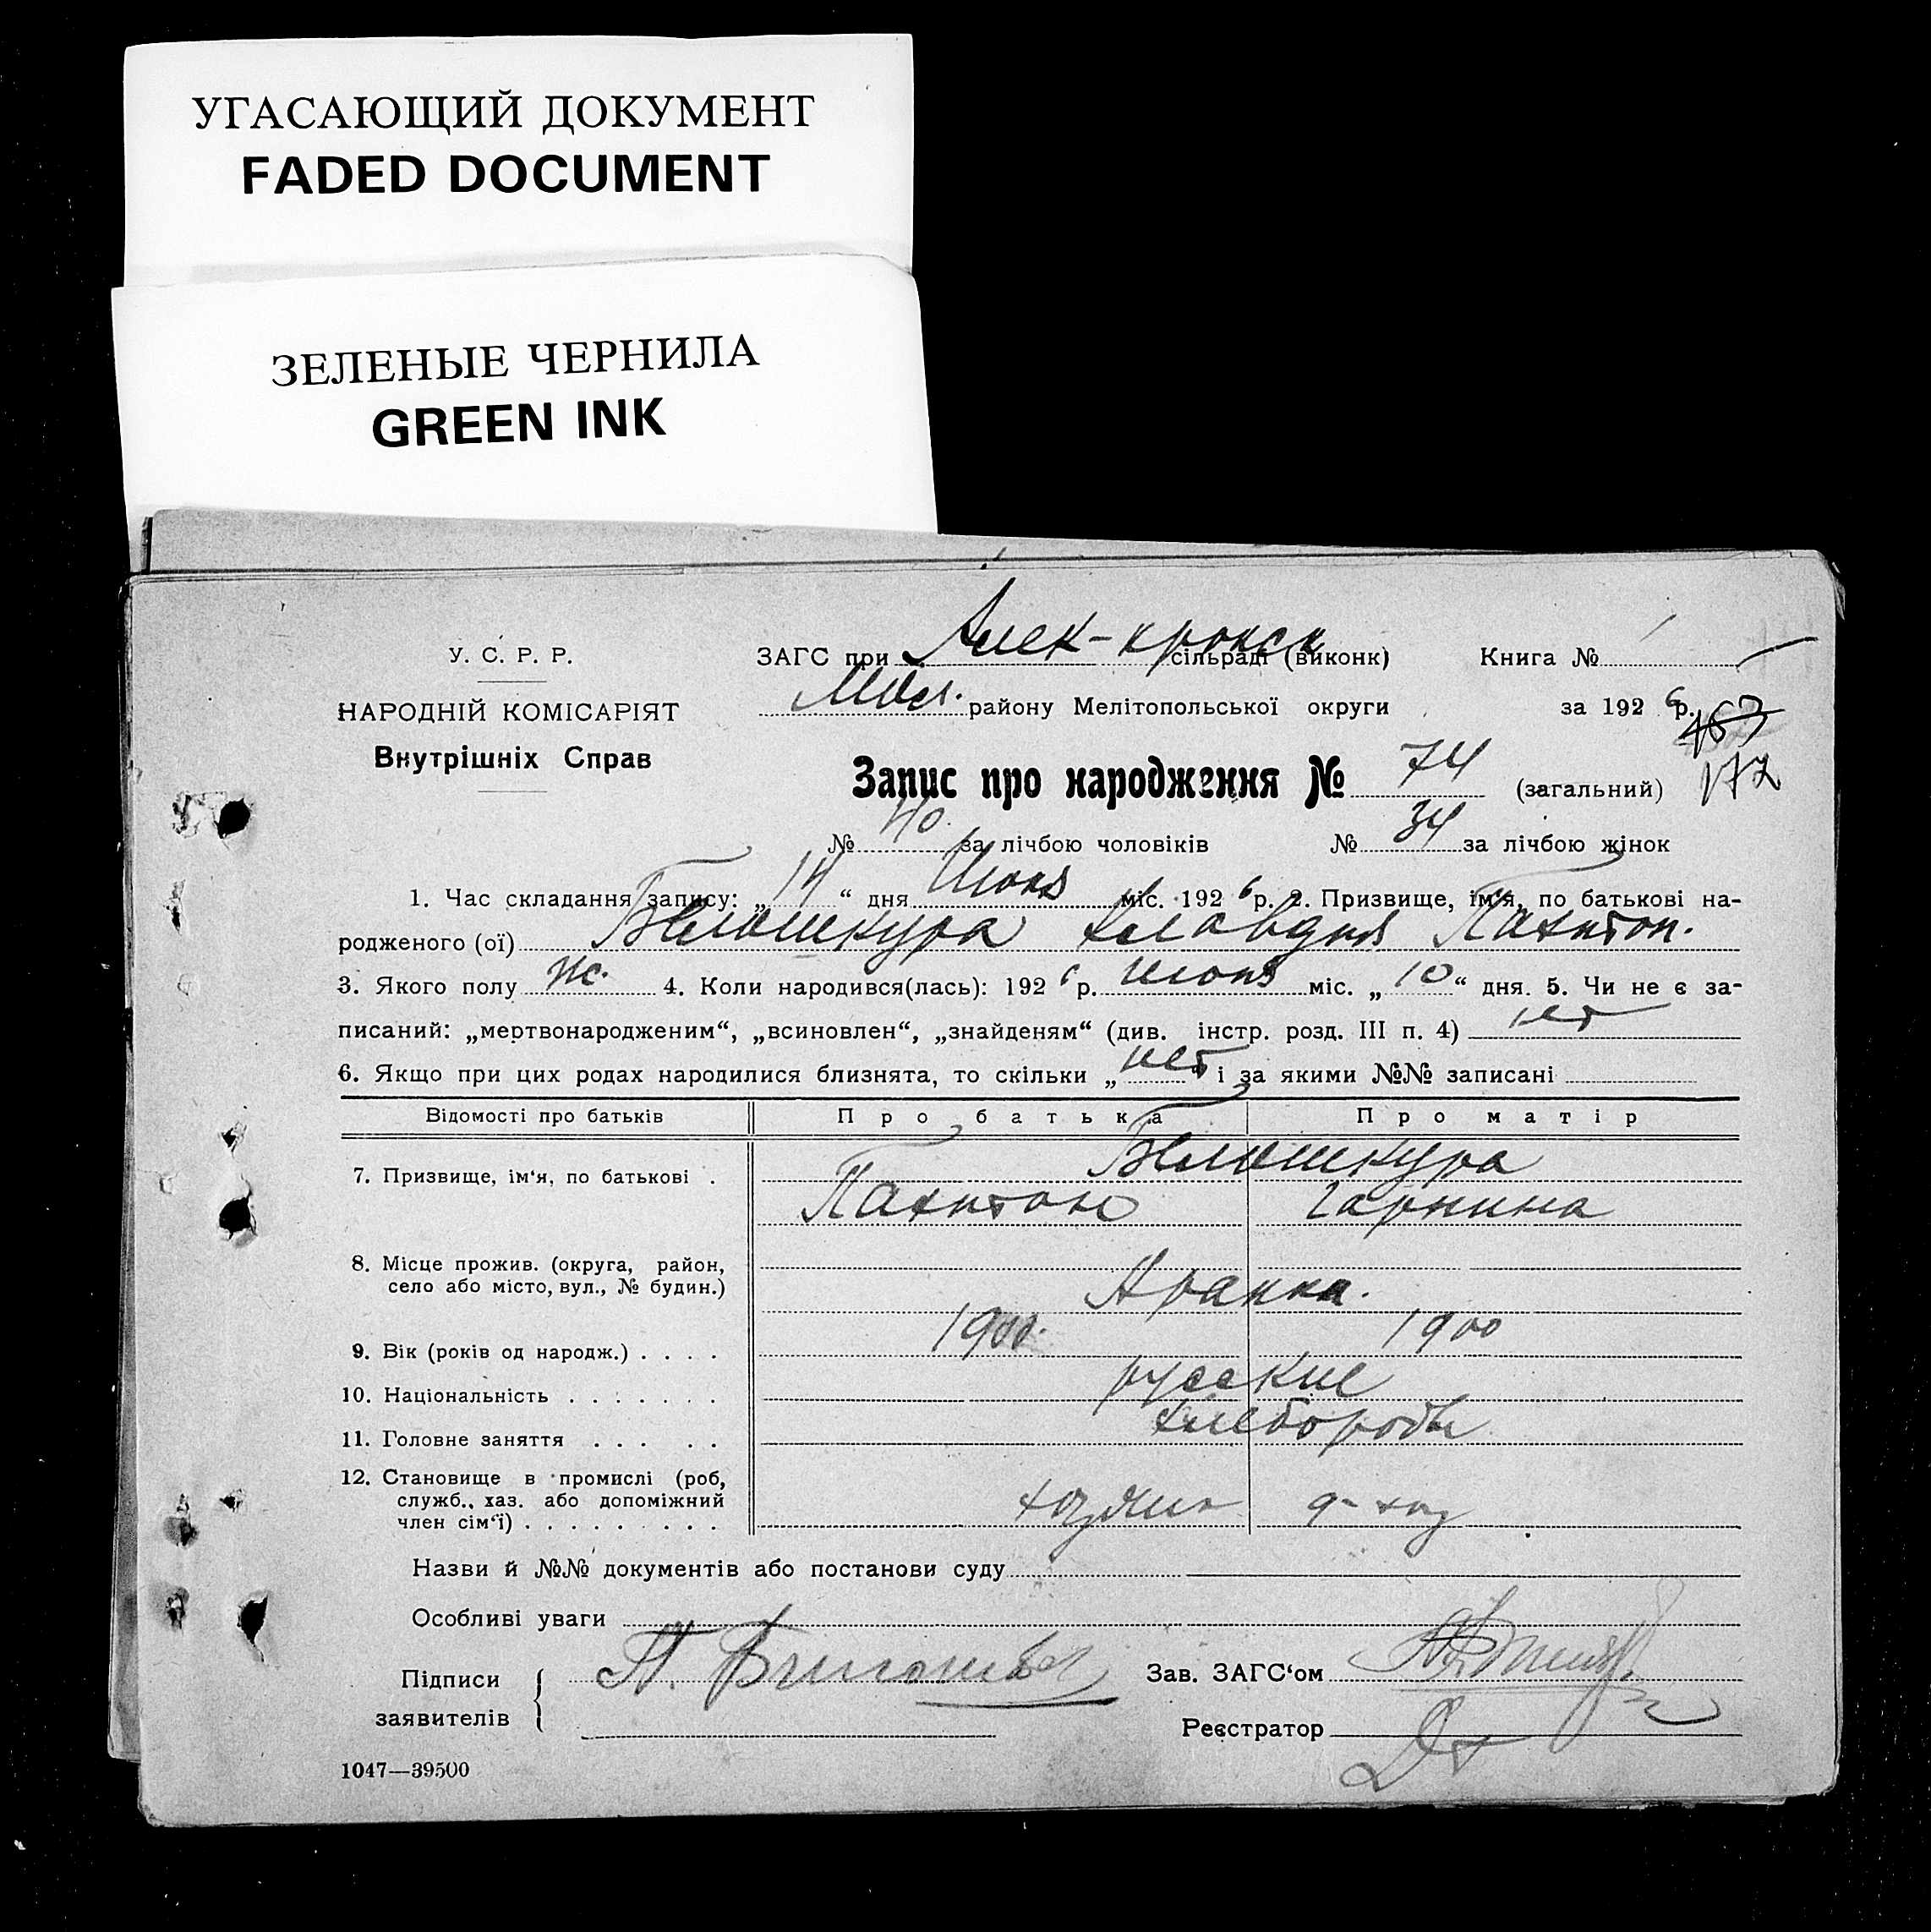 УГАСАЮЩИЙ ДОКУМЕНТ
FADED DOCUMENT
ЗЕЛЕНЫЕ ЧЕРНИЛА
GREEN INK
У. С. Р. Р.
НАРОДНІЙ КОМІСАРІЯТ
Внутрішніх Справ
ЗАГС при Алек- сільраді (виконк) Книга №
району Мелітопольської округи за 1926 р.
167
172
Запис про народження № 74 (загальний)
№ 40. за лічбою чоловіків № 34 за лічбою жінок
1. Час складання запису: „14“ дня Июня міс. 1926 р. 2. Призвище, ім'я, по батькові на-
родженого (ої) Белошкура Клавдия
3. Якого полу ж. 4. Коли народився(лась): 1926 р. июня міс. „10“ дня. 5. Чи не є за-
писаний: „мертвонародженим“, „всиновлен“, „знайденям“ (див. інстр. розд. III п. 4) нет
6. Якщо при цих родах народилися близнята, то скільки „нет“ і за якими №№ записані
Відомості про батьків Про батька Про матір
7. Призвище, ім'я, по батькові . Белошкура
8. Місце прожив. (округа, район,
село або місто, вул., № будин.)
9. Вік (років од народж.) . . . . 1900. 1900
10. Національність . . . . . . . русские
11. Головне заняття . . . . . хлебороды
12. Становище в промислі (роб,
служб., хаз. або допоміжний
член сім'ї) . . . . . . . . . хозяин д- хоз
Назви й №№ документів або постанови суду
Особливі уваги
Підписи
заявителів
Зав. ЗАГС'ом
Реєстратор
1047—39500